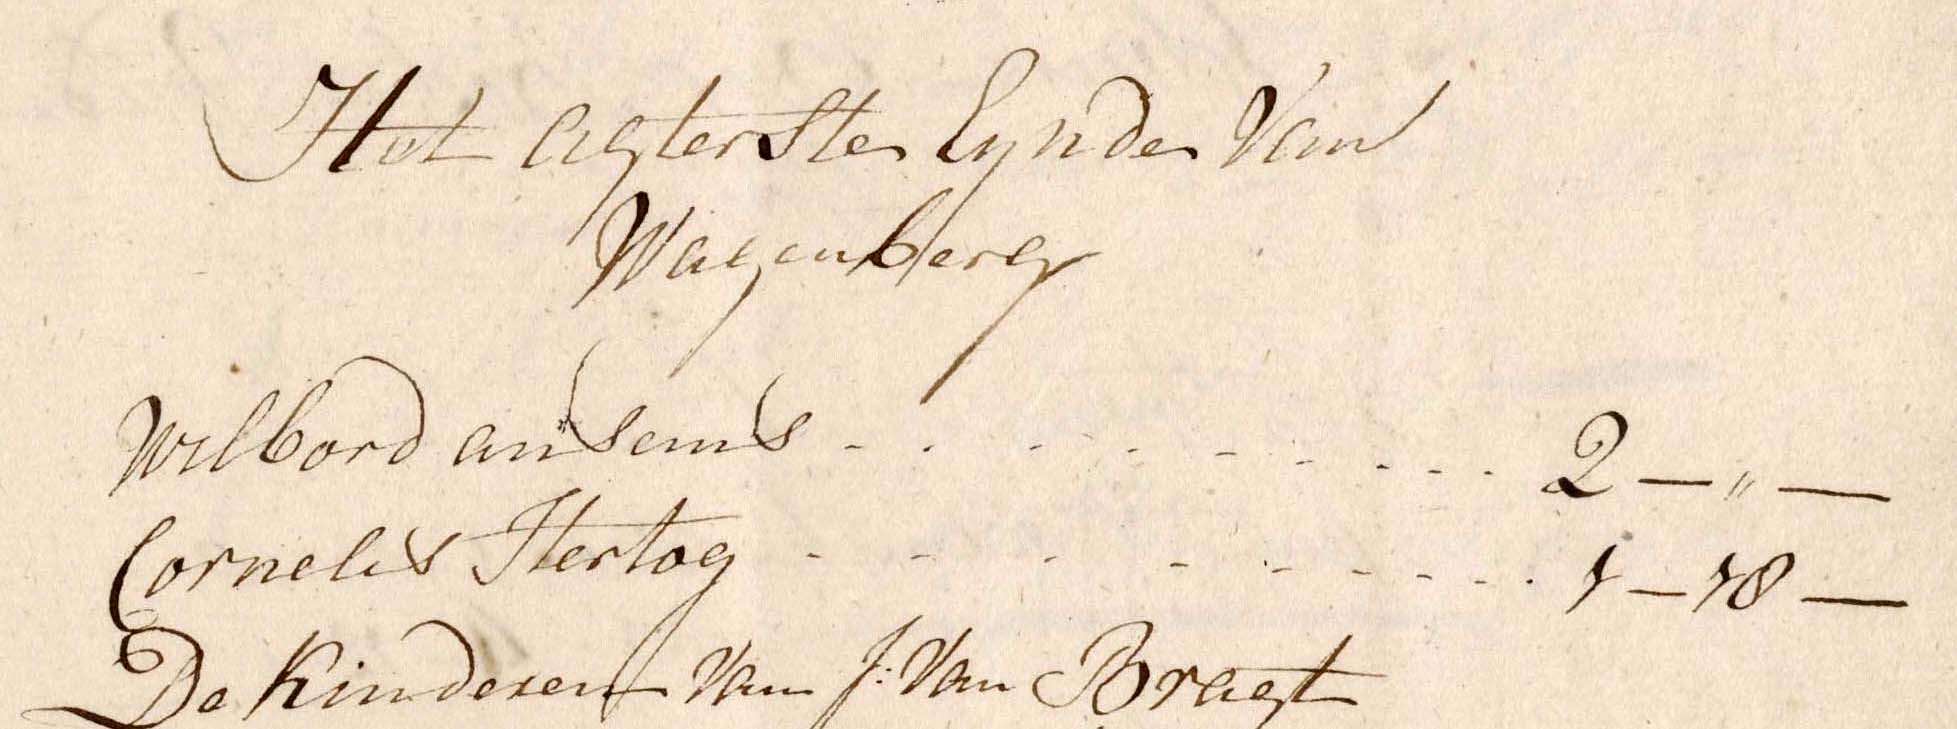 Het agterste Eynde Van
Wagenberg
Wilbord ansems - . - - - - - - - - . 2 — " —
Cornelis Hertog - - - - - - - - - - . 1 — 18 —
De Kinderen Van J: Van Bragt